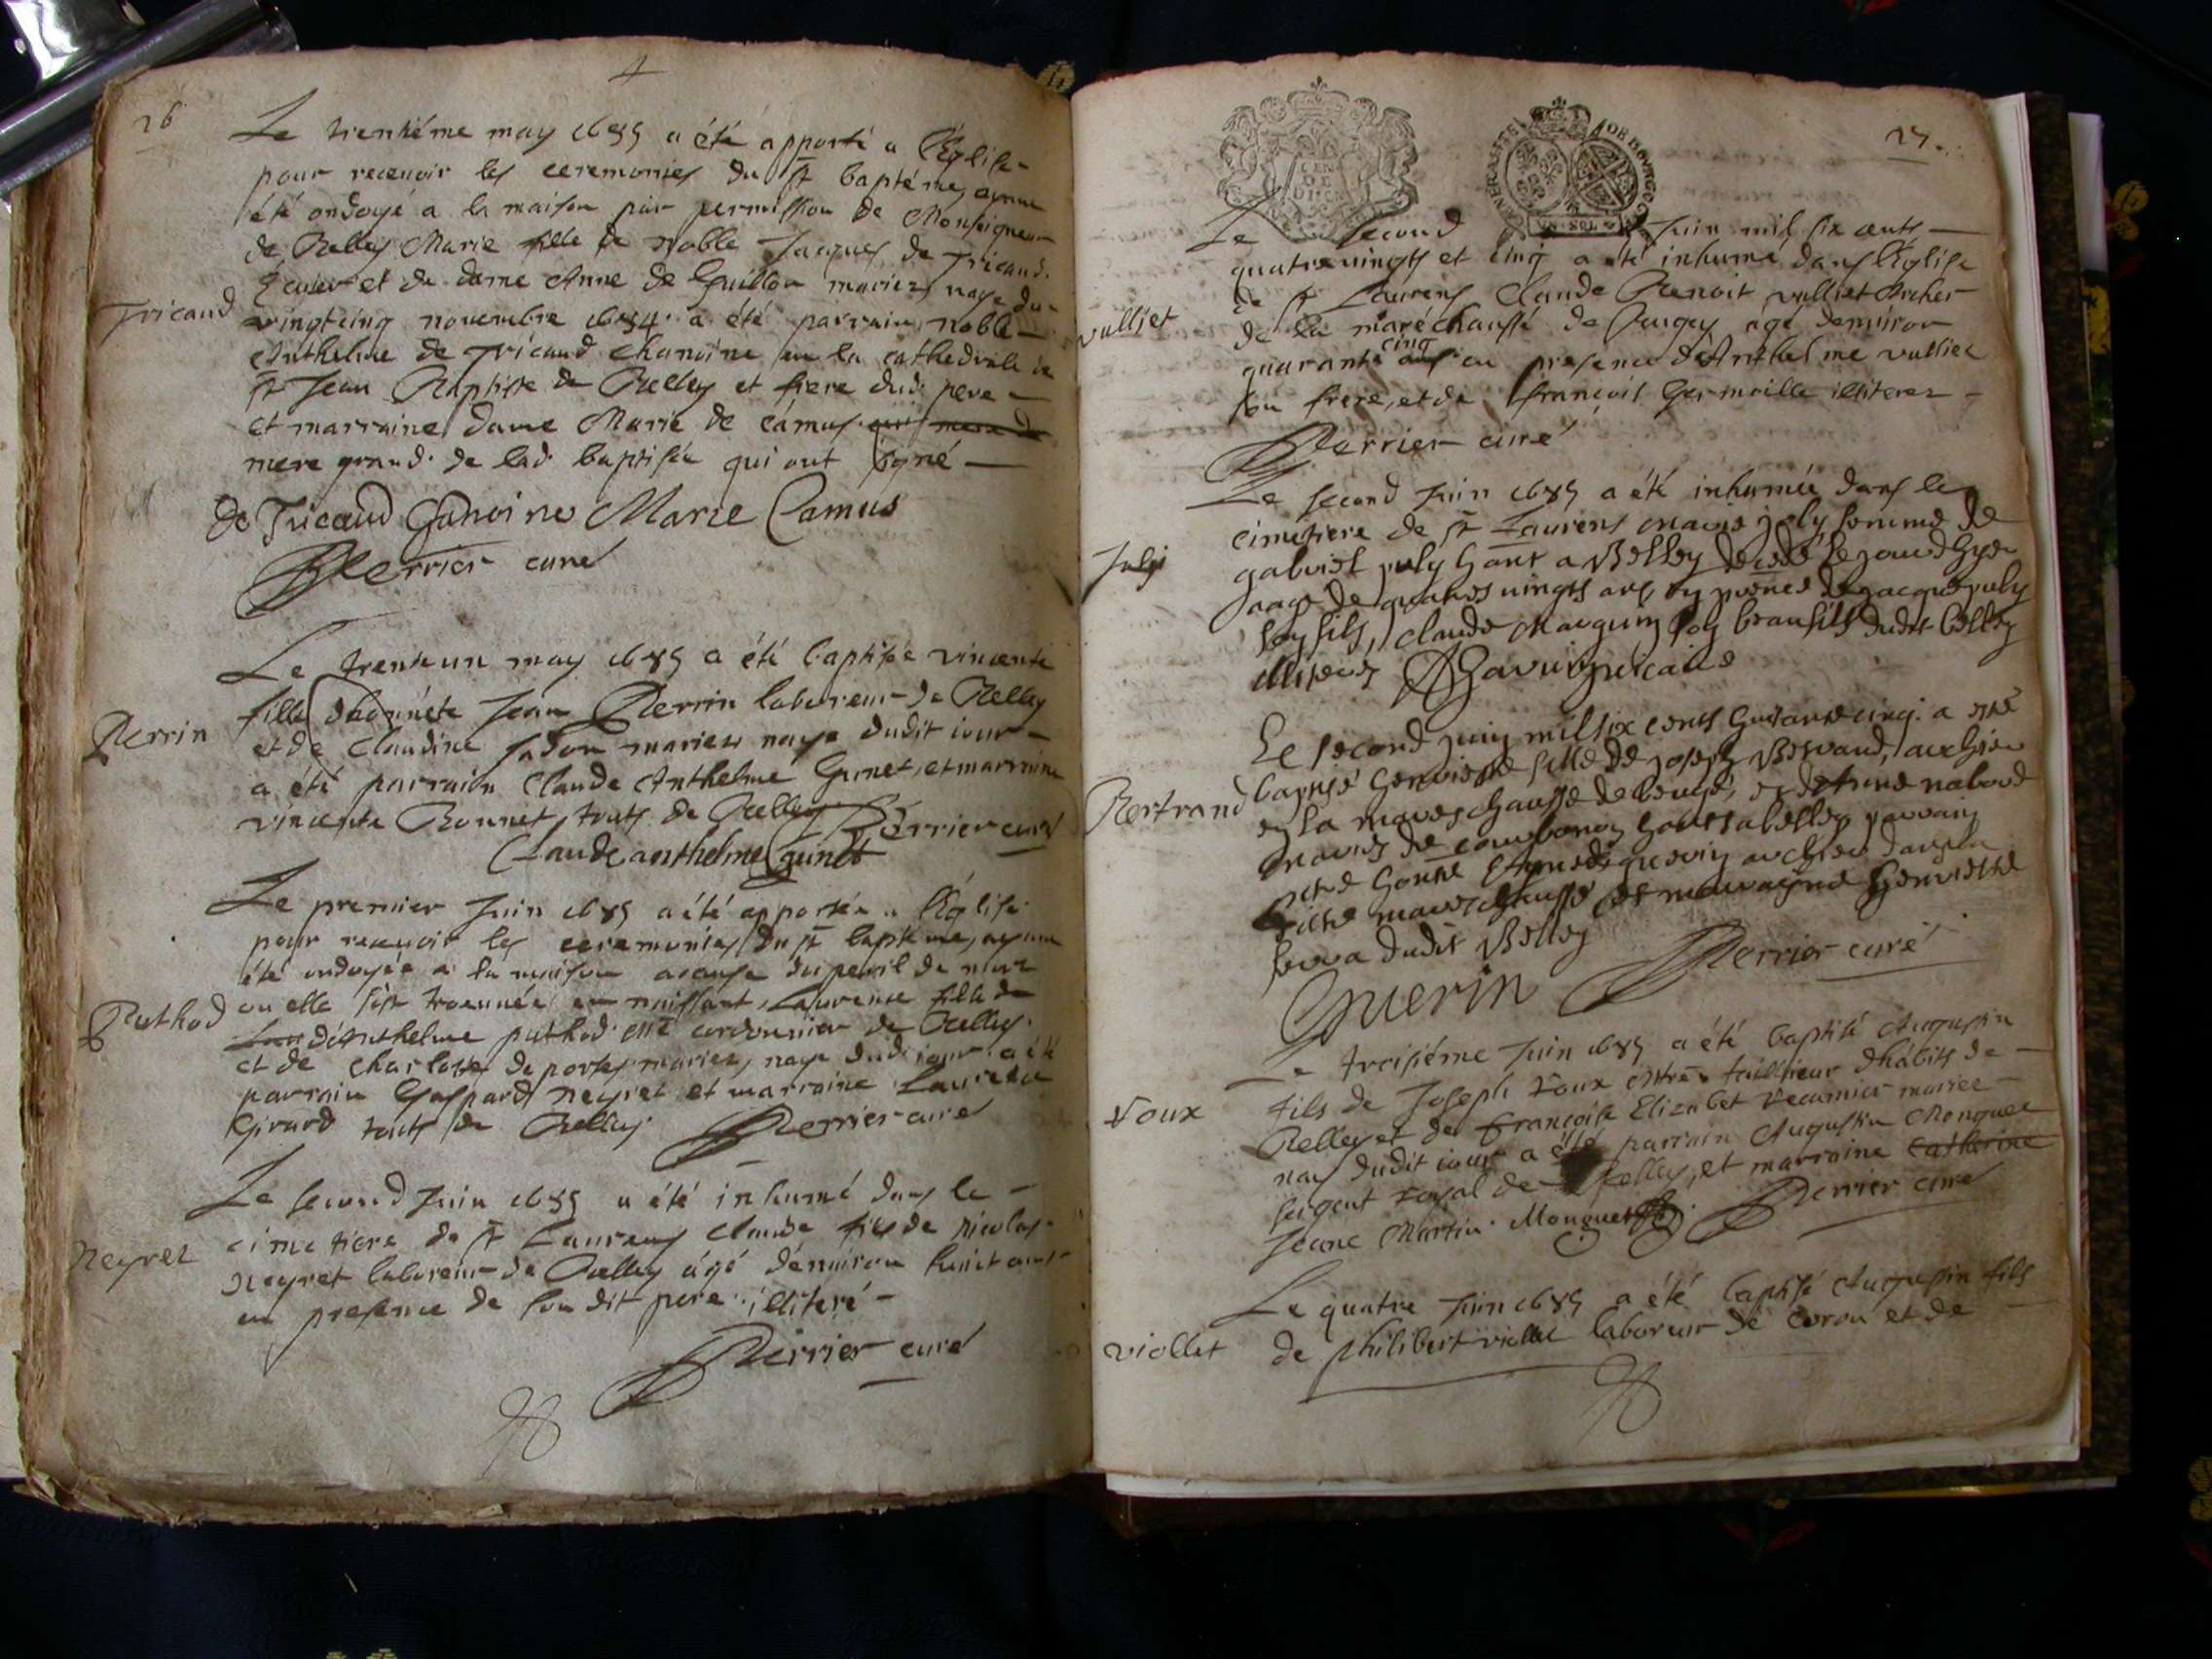 26
Le trentiéme may 1685 a été apporté a l'Église
pour receuoir les ceremonies du st baptéme, ayant
été ondoyé a la maison par permission de Monseigneur
de Belley Marie fille de noble Jacques de Tricaud
Ecuier et de dame Anne de Guillon mariez naye du
Tricaud
vingtcinq nouembre 1684 a été parrain noble
Anthelme de Tricaud chanoine en la cathedrale de
st Jean Baptiste de Belley et frere dud. pere
et marraine dame Marie de Camus
mere grand de lad. baptisée qui ont signé
de Tricaud Chanoine Marie Camus
Perrier curé
Le trenteun may 1685 a été baptisée vincente
fille d'honnéte Jean Perrin laboreur de Belley
Perrin
et de Claudine mariez naye dudit iour
a été parrain Claude Anthelme Guinet, et marraine
vincente Bonnet touts de Belley Perrier curé
Claude anthelme Guinet
Le premier Juin 1685 a été apportée a l'Église
pour receuoir les ceremonies du st baptéme, ayant
été ondoyée a la maison a cause du peril de mort
Puthod
ou elle s'est trouuée en naissant, Laurence fille de
d'Anthelme puthod cordonnier de Belley
et de Charlotte deportes mariez, naye dud. iour a été
parrain Gaspard neyret et marraine Laurence
Girard touts de Belley Perrier curé
Le second Juin 1685 a été inhumé dans le
cimetiere de st Laurens Claude fils de nicolas
Neyret
Neyret laboreur de Belley ágé d'enuiron huict ans
en presence de son dit pere illiteré
Perrier curé
27
GENERALITE DE BOVRGOGNE
VN SOL
Le second Juin mil six cents
quatreuingts et cinq a été inhumé dans l'Église
de st Laurens Claude Benoit vulliet Archer
vulliet
de la maréchaussé de Bugey ágé d'enuiron
quarante cinq ans en presence d'Anthelme vulliet
son frere, et de françois Germaille illiterez
Perrier curé
Le second Juin 1685 a été inhumée dans le
cimetiere de st Laurens Marie femme de
July
gabriel july a Belley decedé le jourdhyer
aage de quatre uingts ans, en presence de jacque july
son fils, claude Marguin son beaufils dudit belley
illiterez vicaire
Le second juin mil six cents huitante cinq a esté
baptisé Genvieve fille de joseph Bertrand, archier
Bertrand
en la mareschaussé de beugé, et de Anne nabord
mariés de a belley parrain
honnéte archier dans la
dicte mareschaussé et marraine Genvieve
dudit Belley
Guerin Perrier curé
Le troisiéme Juin 1685 a été baptisé Augustin
fils de Joseph roux maitre tailleur d'habits de
roux
Belley et de françoise Elizabet recamier mariez
nay dudit iour a été parrain Augustin Monguet
sergent royal de Belley, et marraine Catherine
Jeane Martin. Monguet Perrier curé
Le quatre Juin 1685 a été baptisé Augustin fils
viollet
de philibert viollet laboreur de coron et de